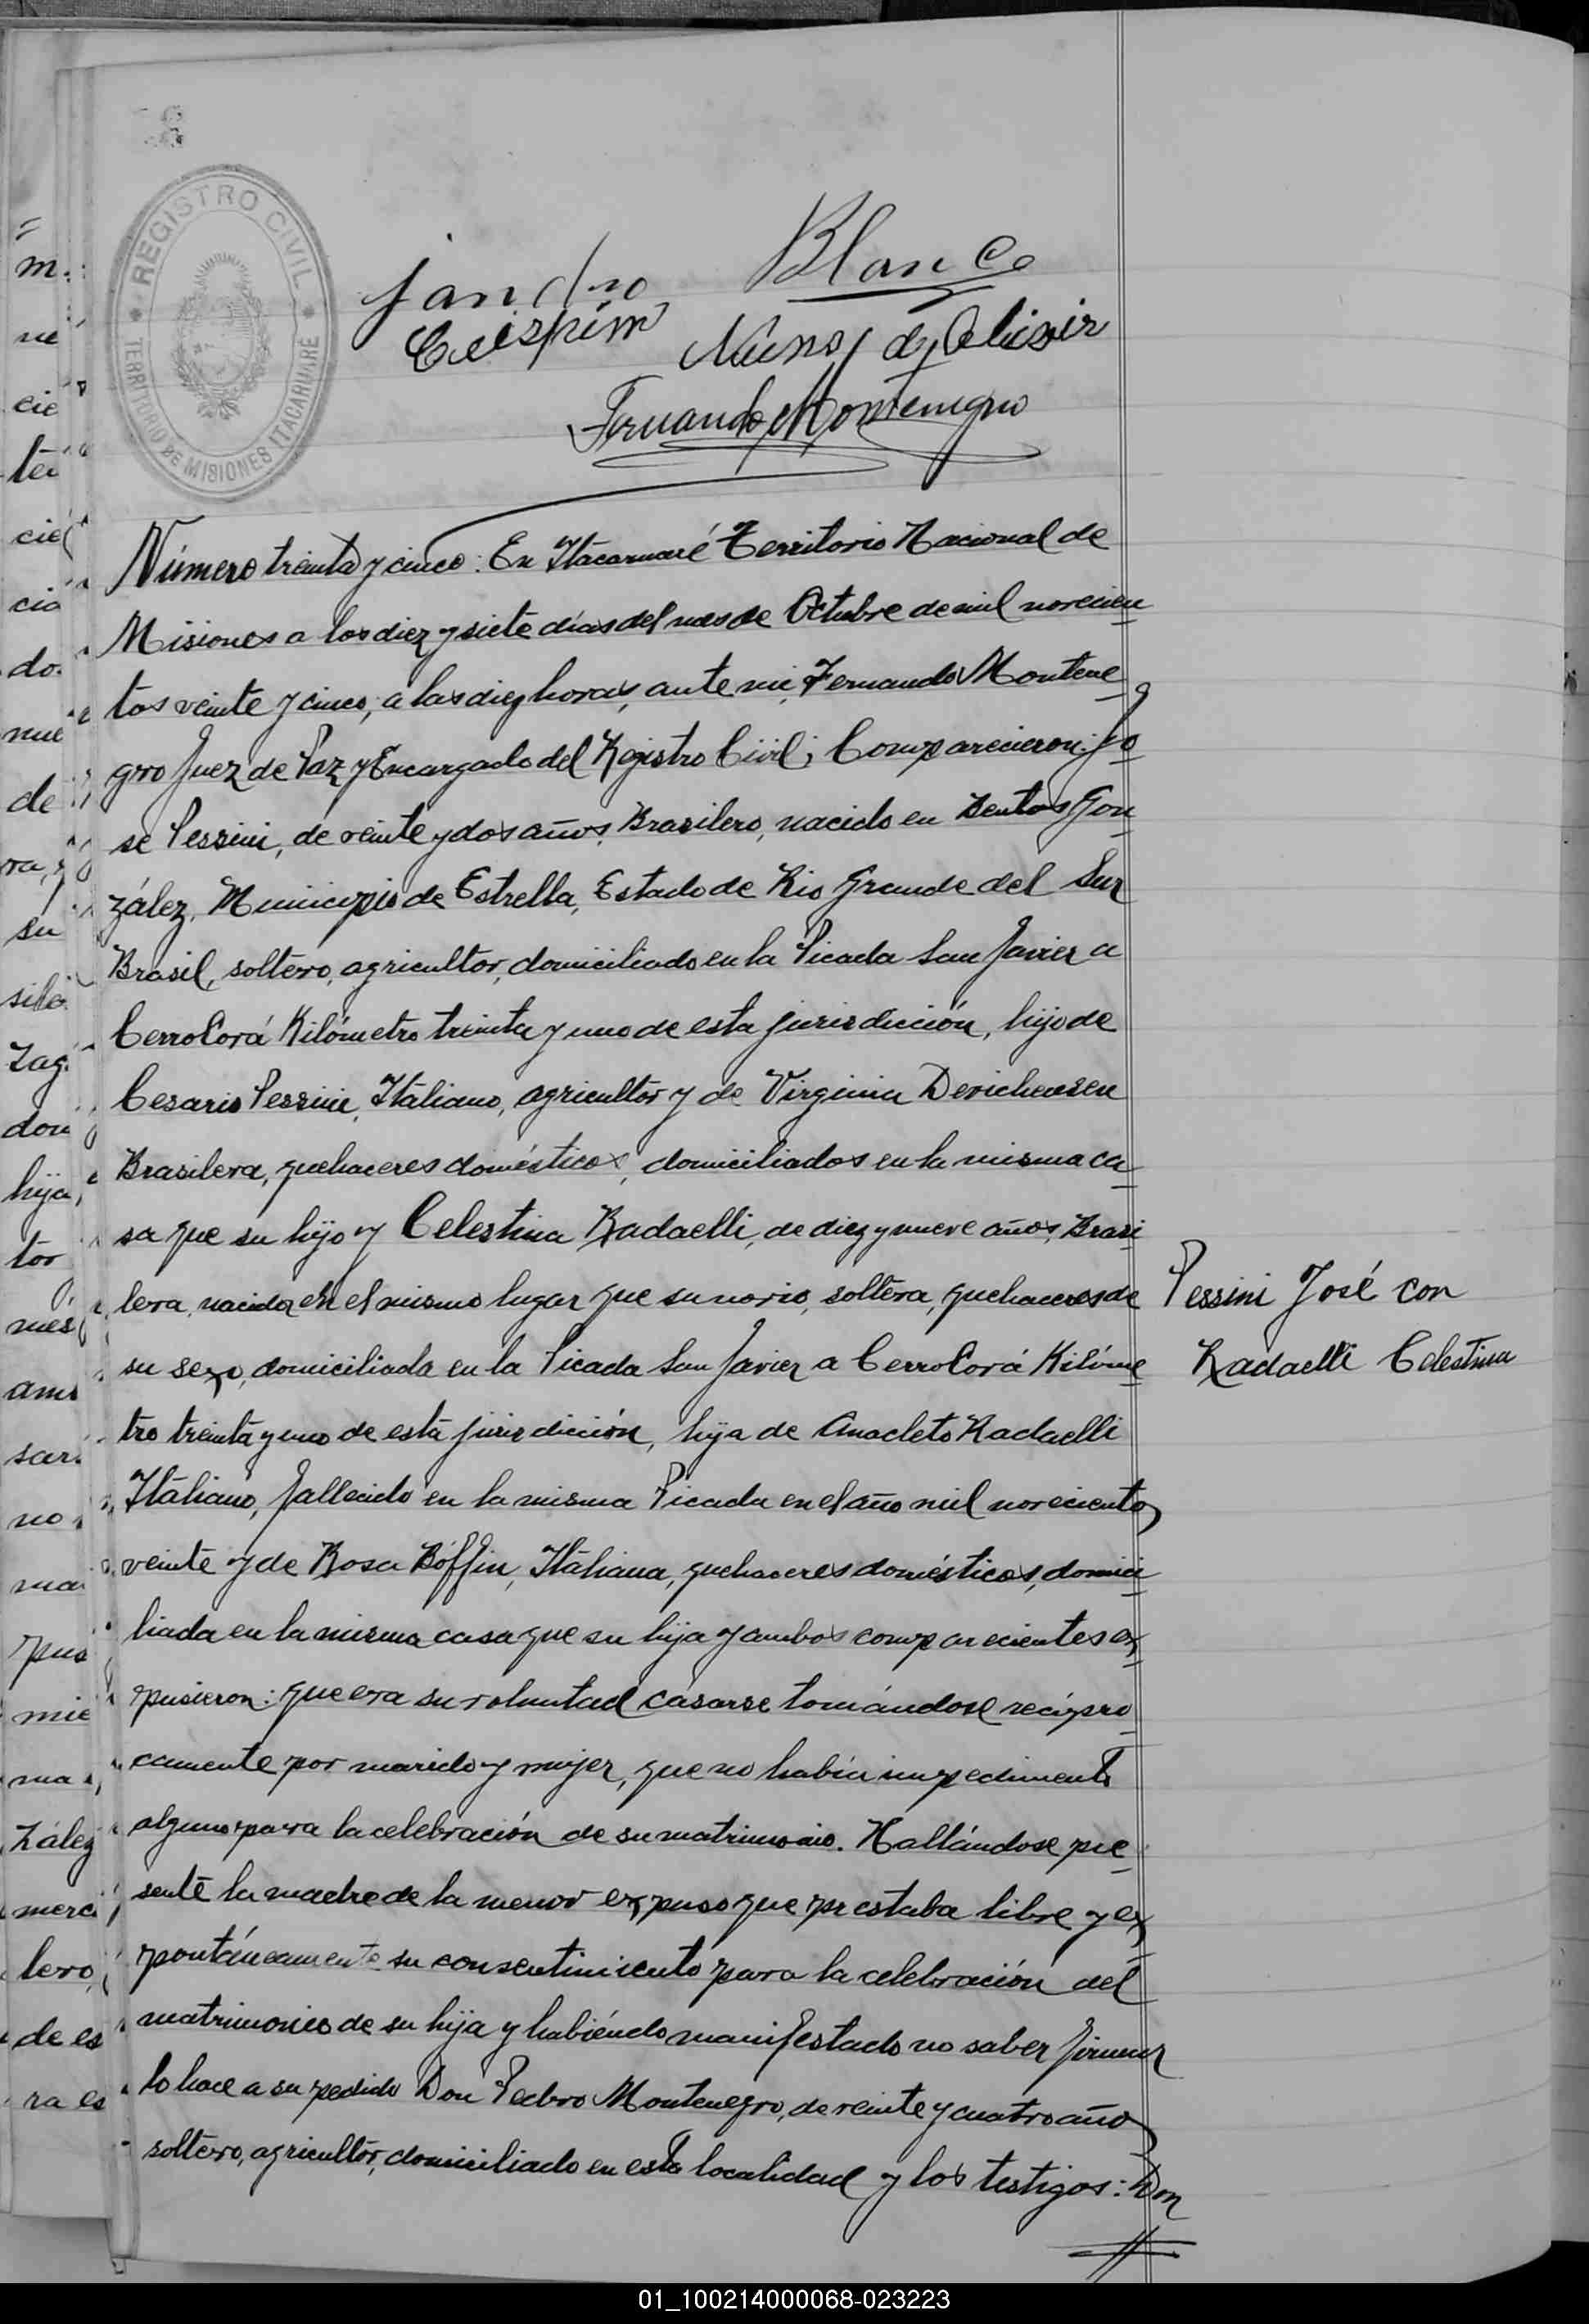 REGISTRO CIVIL
TERRITORIO DE MISIONES ITACARUARÉ
jandro Blanco
Crispim Nunes d
Fernando Montenegro
Número treinta y cinco: En Itacaruaré Territorio Nacional de
Misiones a los diez y siete días del mes de Octubre de mil novecien
tos veinte y cinco, a las diez horas, ante mi, Fernando Montene
gro Juez de Paz y Encargado del Registro Civil; Comparecieron: Jo
se Pessini, de veinte y dos años, Brasilero, nacido en Bentos Gon
zález, Municipio de Estrella, Estado de Rio Grande del Sur
Brasil, soltero, agricultor, domiciliado en la Picada San Javier a
Cerro Corá Kilómetro treinta y uno de esta jurisdicción, hijo de
Cesario Pessini, Italiano, agricultor y de Virginia Derichensen
Brasilera, quehaceres domésticos, domiciliados en la misma ca
sa que su hijo y Celestina Radaelli, de diez y nueve años, Brasi
lera, nacida en el mismo lugar que su novio, soltera, quehaceres de
su sexo, domiciliada en la Picada San Javier a Cerro Corá Kilóme
tro treinta y uno de esta jurisdicción, hija de Anacleto Radaelli
Italiano, fallecido en la misma Picada en el año mil novecientos
veinte y de Rosa Bóffin, Italiana, quehaceres domésticos, domici
liada en la misma casa que su hija y ambos comparecientes ex
pusieron: que era su voluntad casarse tomándose recípro
camente por marido y mujer, que no había impedimento
alguno para la celebración de su matrimonio. Hallándose pre
sente la madre de la menor expuso que prestaba libre y ex
pontáneamente su consentimiento para la celebración del
matrimonio de su hija y habiéndo manifestado no saber firmar
lo hace a su pedido Don Pedro Montenegro, de veinte y cuatro años
soltero, agricultor, domiciliado en esta localidad y los testigos: Don
Pessini José con
Radaelli Celestina
01_100214000068-023223